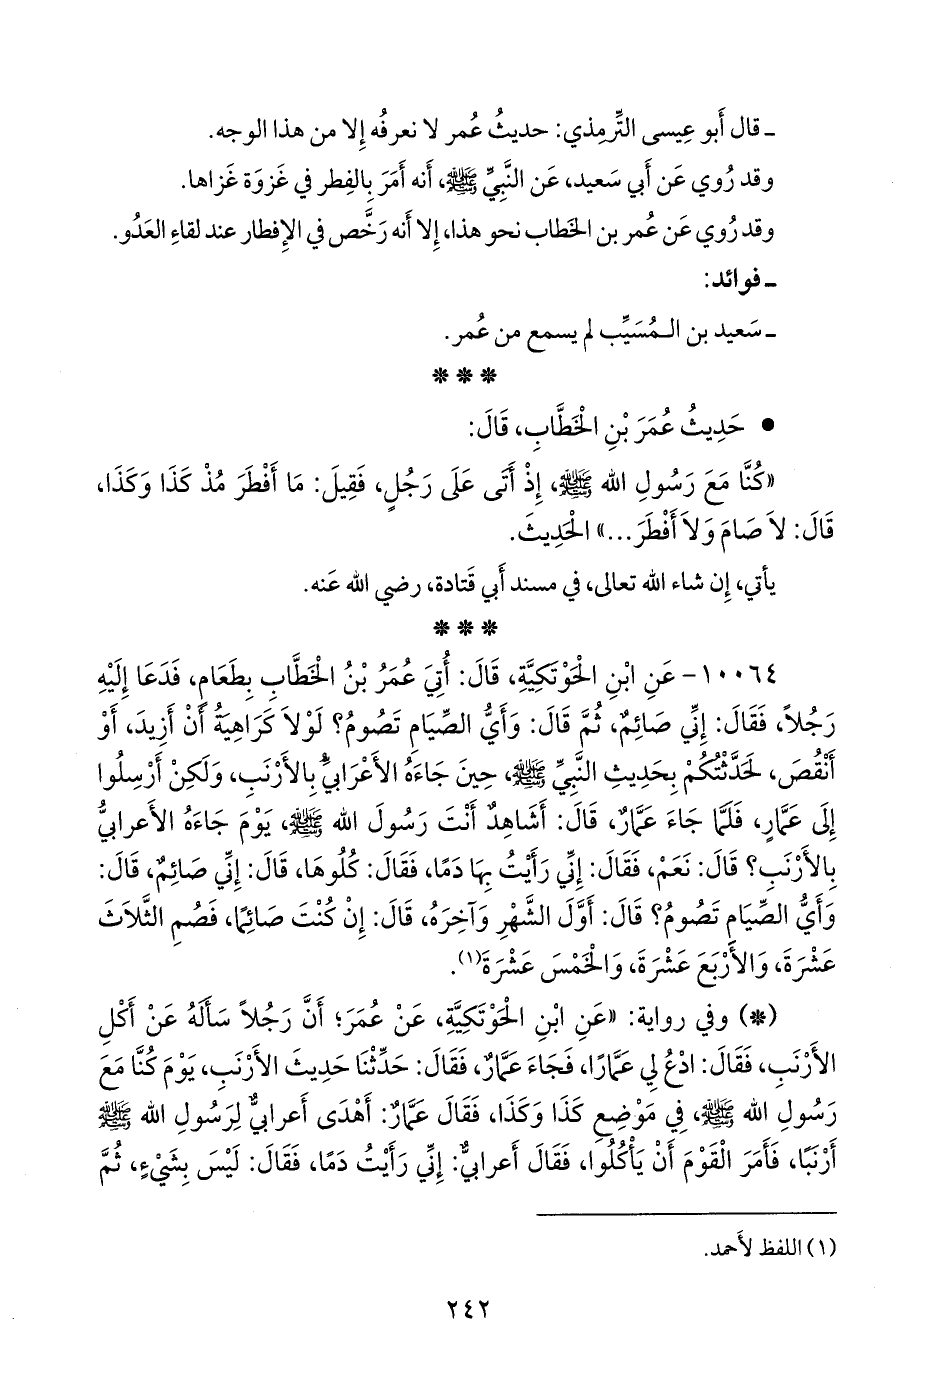 ـ قال أَبو عِيسى التِّرمِذي: حديثُ عُمر لا نعرفُه إِلا من هذا الوجه.
وقد رُوي عَن أَبي سَعيد، عَن النَّبيِّ ﷺ، أَنه أَمَرَ بِالفِطر في غَزوَة غَزاها.
وقد رُوي عَن عُمر بن الخَطاب نحو هذا، إِلا أَنه رَخَّص في الإِفطار عند لقاءِ العَدُو.
ـ فوائد:
ـ سَعيد بن الـمُسَيِّب لم يسمع من عُمر.
* * *
• حَدِيثُ عُمَرَ بْنِ الْخَطَّابِ، قَالَ:
«كُنَّا مَعَ رَسُولِ الله ﷺ، إِذْ أَتَى عَلَى رَجُلٍ، فَقِيلَ: مَا أَفْطَرَ مُذْ كَذَا وَكَذَا،
قَالَ: لاَ صَامَ وَلاَ أَفْطَرَ...» الْحَدِيثَ.
يأتي، إِن شاء الله تعالى، في مسند أَبي قَتادة، رضي الله عَنه.
* * *
١٠٠٦٤ - عَنِ ابْنِ الْحَوْتَكِيَّةِ، قَالَ: أُتِيَ عُمَرُ بْنُ الْخَطَّابِ بِطَعَامٍ، فَدَعَا إِلَيْهِ
رَجُلاً، فَقَالَ: إِنِّي صَائِمٌ، ثُمَّ قَالَ: وَأَيُّ الصِّيَامِ تَصُومُ؟ لَوْلاَ كَرَاهِيَةُ أَنْ أَزِيدَ، أَوْ
أَنْقُصَ، لَحَدَّثْتُكُمْ بِحَدِيثِ النَّبِيِّ ﷺ، حِينَ جَاءَهُ الأَعْرَابِيُّ بِالأَرْنَبِ، وَلَكِنْ أَرْسِلُوا
إِلَى عَمَّارٍ، فَلَمَّا جَاءَ عَمَّارٌ، قَالَ: أَشَاهِدٌ أَنْتَ رَسُولَ الله ﷺ، يَوْمَ جَاءَهُ الأَعرابيُّ
بِالأَرْنَبِ؟ قَالَ: نَعَمْ، فَقَالَ: إِنِّي رَأَيْتُ بِهَا دَمًا، فَقَالَ: كُلُوهَا، قَالَ: إِنِّي صَائِمٌ، قَالَ:
وَأَيُّ الصِّيَامِ تَصُومُ؟ قَالَ: أَوَّلَ الشَّهْرِ وَآخِرَهُ، قَالَ: إِنْ كُنْتَ صَائِمًا، فَصُمِ الثَّلاَثَ
عَشْرَةَ، وَالأَرْبَعَ عَشْرَةَ، وَالْخَمْسَ عَشْرَةَ(١).
(*) وفي رواية: «عَنِ ابْنِ الْحَوْتَكِيَّةِ، عَنْ عُمَرَ؛ أَنَّ رَجُلاً سَأَلَهُ عَنْ أَكْلِ
الأَرْنَبِ، فَقَالَ: ادْعُ لِي عَمَّارًا، فَجَاءَ عَمَّارٌ، فَقَالَ: حَدِّثْنَا حَدِيثَ الأَرْنَبِ، يَوْمَ كُنَّا مَعَ
رَسُولِ الله ﷺ، فِي مَوْضِعِ كَذَا وَكَذَا، فَقَالَ عَمَّارٌ: أَهْدَى أَعرابيٌّ لِرَسُولِ الله ﷺ
أَرْنَبًا، فَأَمَرَ الْقَوْمَ أَنْ يَأْكُلُوا، فَقَالَ أَعرابيٌّ: إِنِّي رَأَيْتُ دَمًا، فَقَالَ: لَيْسَ بِشَيْءٍ، ثُمَّ
(١) اللفظ لأَحمد.
٢٤٢